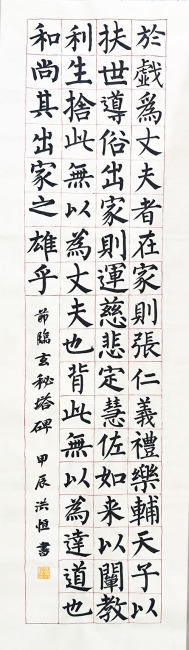 於戲爲丈夫者在家則張仁義禮樂輔天子以
扶世導俗出家則運慈悲定慧佐如来以闡教
利生捨此無以為丈夫也背此無以為達道也
和尚其出家之雄乎
節臨玄秘塔碑 甲辰 洪恒 書